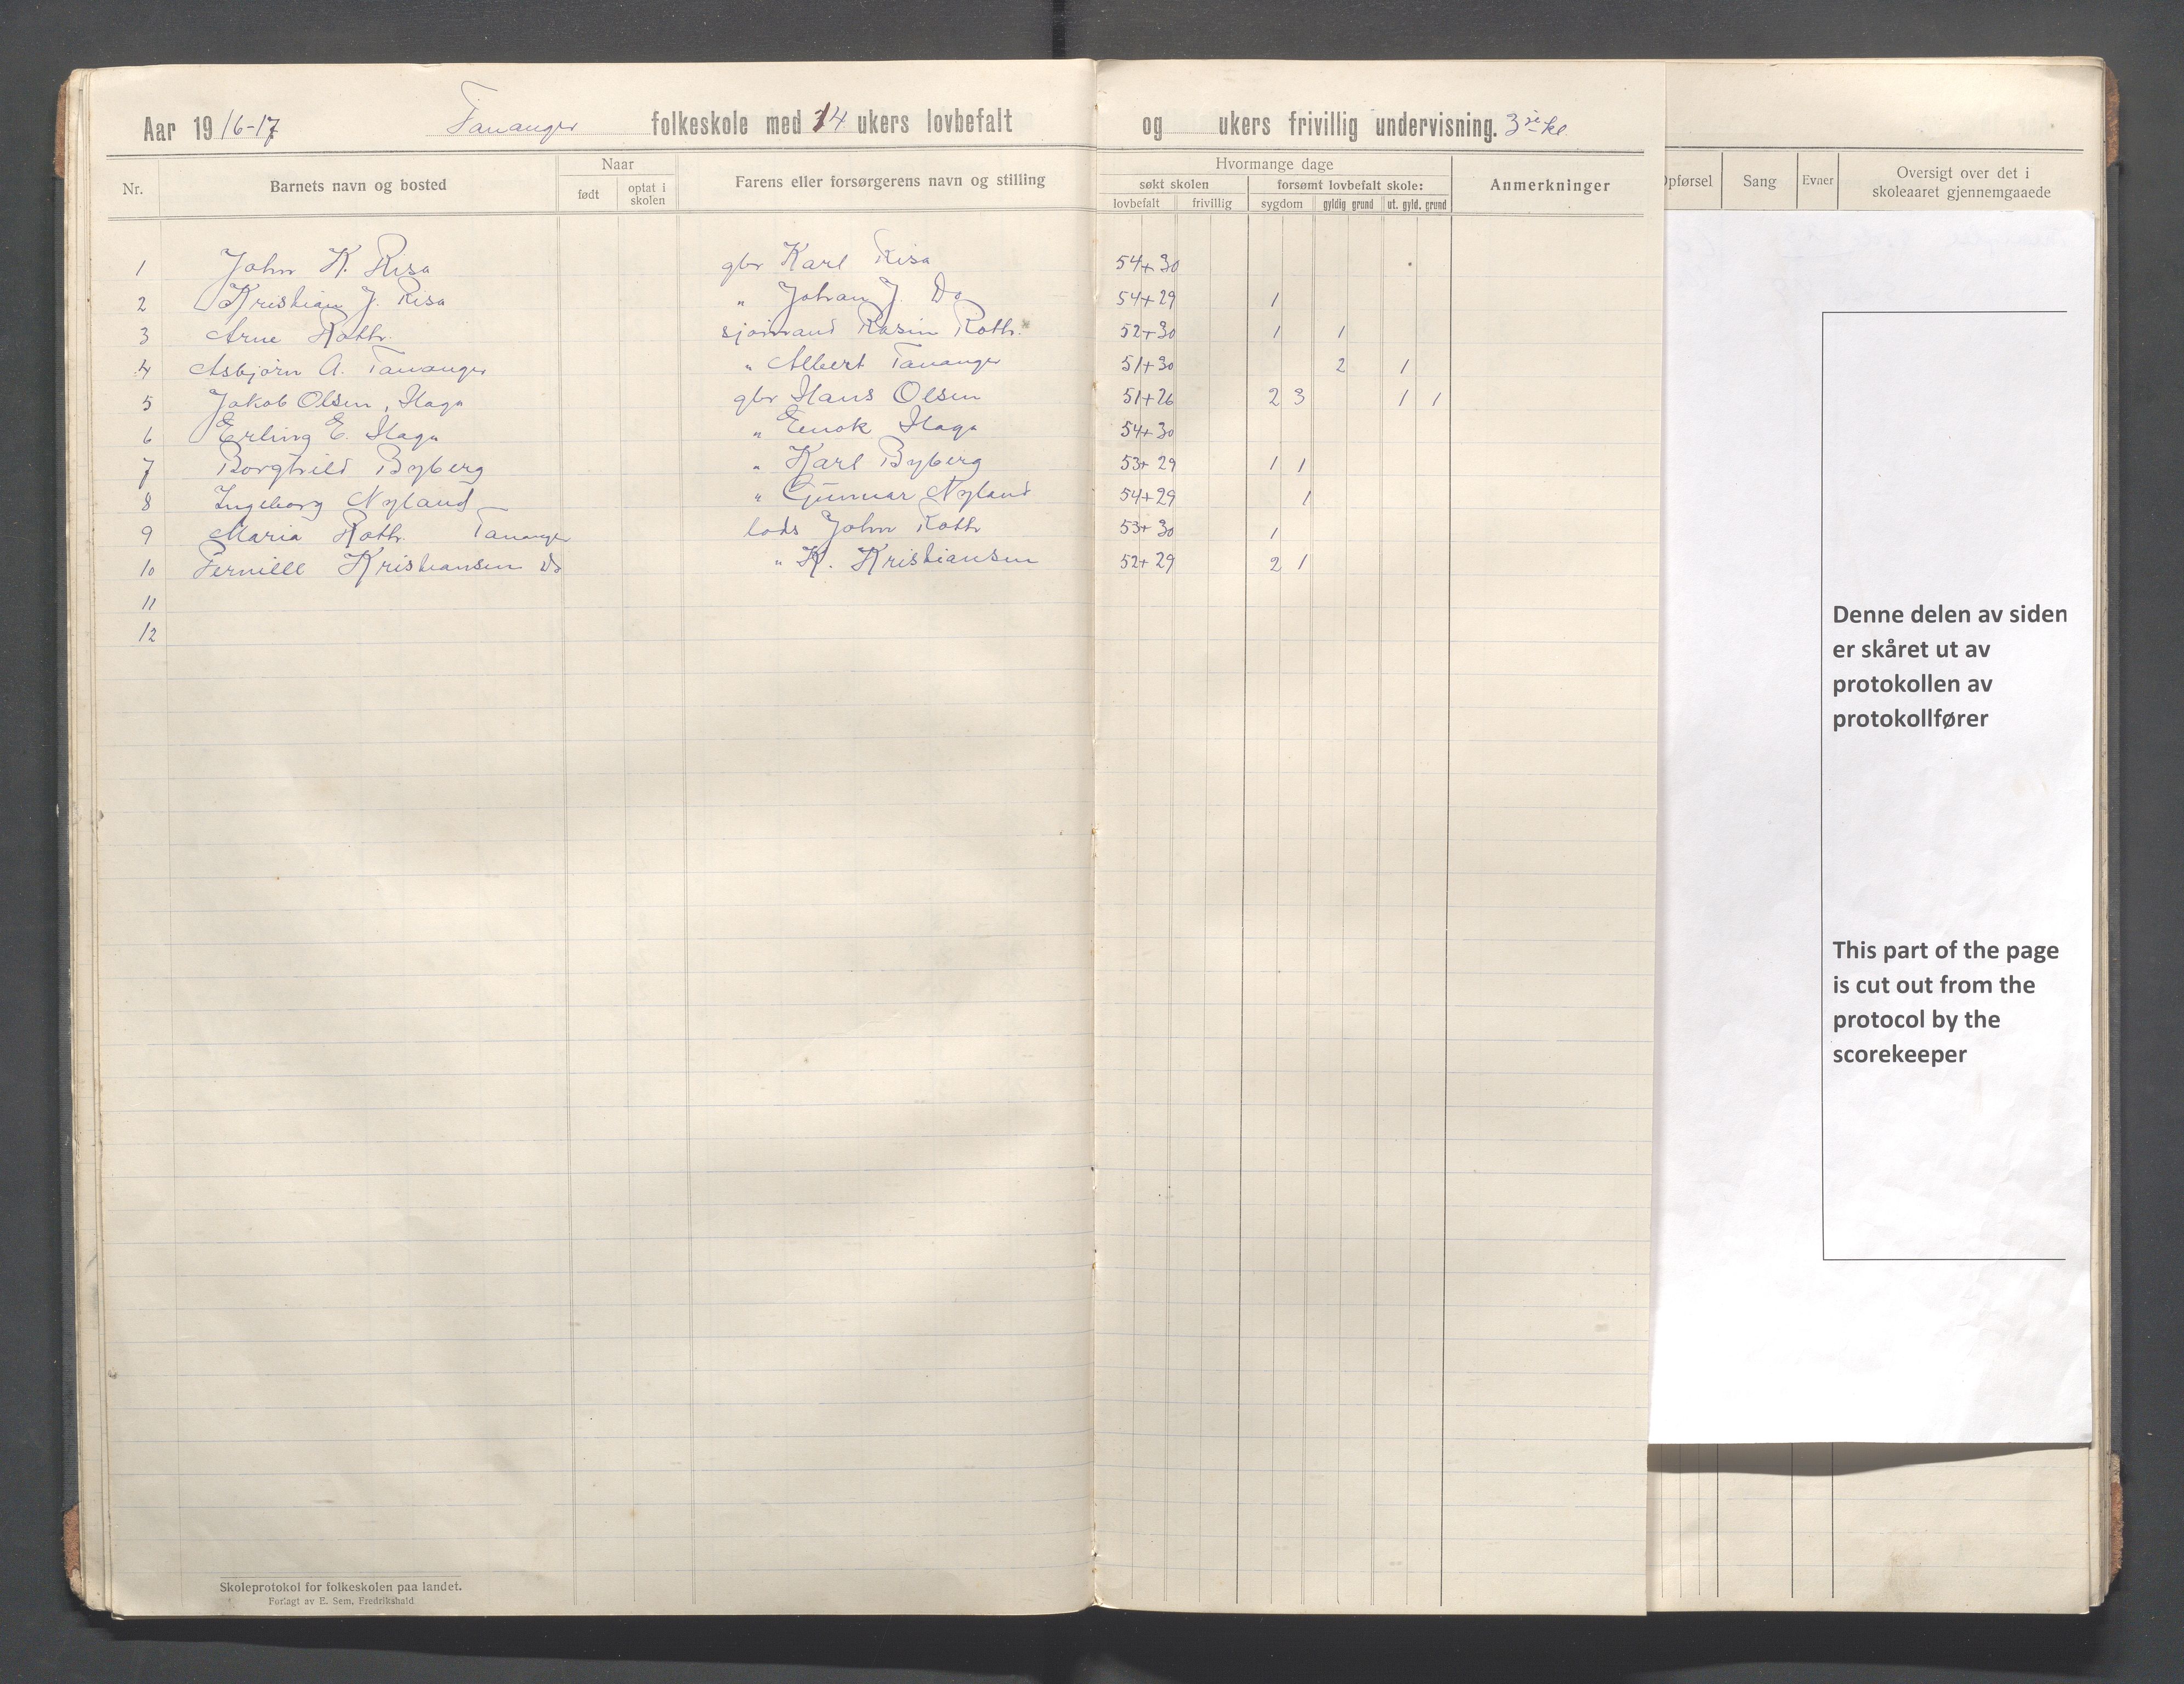 Aar 1916-17 Tananger folkeskole med 14 ukers lovbefalt og ukers frivillig undervisning. 3die kl
Nr. Barnets navn og bosted Naar Farens eller forsørgerens navn og stilling Hvormange dage Anmerkninger
født optat i skolen søkt skolen forsømt lovbefalt skole:
lovbefalt frivillig sygdom gyldig grund ut. gyld. grund
1 John K. Risa gbr Karl Risa 54+30
2 Kristian J. Risa " Johan J. Do 54+29 1
3 Arne Roth. sjømand Rasm Roth. 52+30 1 1
4 Asbjørn A. Tananger " Albert Tananger 51+30 2 1
5 Jakob Olsen, Haga gbr Hans Olsen 51+26 2 3 1 1
6 Erling E. Haga " Enok Haga 54+30
7 Borghild Byberg " Karl Byberg 53+29 1 1
8 Ingeborg Nyland " Gunnar Nyland 54+29 1
9 Maria Roth. Tananger lods John Roth 53+30 1
10 Pernille Kristiansen Do " K. Kristiansen 52+29 2 1
11
12
Skoleprotokol for folkeskolen paa landet.
Forlagt av E. Sem, Fredrikshald
Opførsel Sang Evner Oversigt over det i
skoleaaret gjennemgaaede
Denne delen av siden
er skåret ut av
protokollen av
protokollfører
This part of the page
is cut out from the
protocol by the
scorekeeper